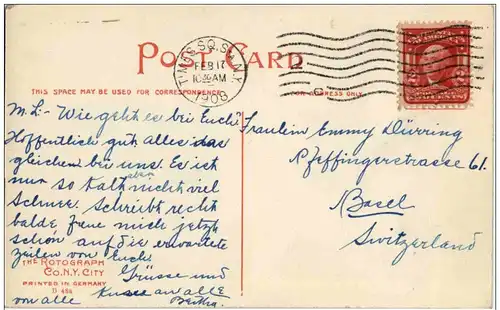 POST CARD
TIMES SQ. STA. N.Y.
FEB 17
10 30 AM
1908
THIS SPACE MAY BE USED FOR CORRESPONDENCE
FOR ADDRESS ONLY
M. L. - Wie geht es bei Euch?
Hoffentlich gut. Alles das
gleichen bei uns. Es ist
nur so kalt aber nicht viel
Schnee. Schreibt recht
balde, freue mich jetzt
schon auf die erwartete
Zeilen von Euch.
Grüsse und
Küsse an alle
von alle Bertha.
Fraulein Emmy Dürring
Pfeffingerstrasse 61.
Basel
Switzerland
THE ROTOGRAPH
CO. N.Y. CITY
PRINTED IN GERMANY